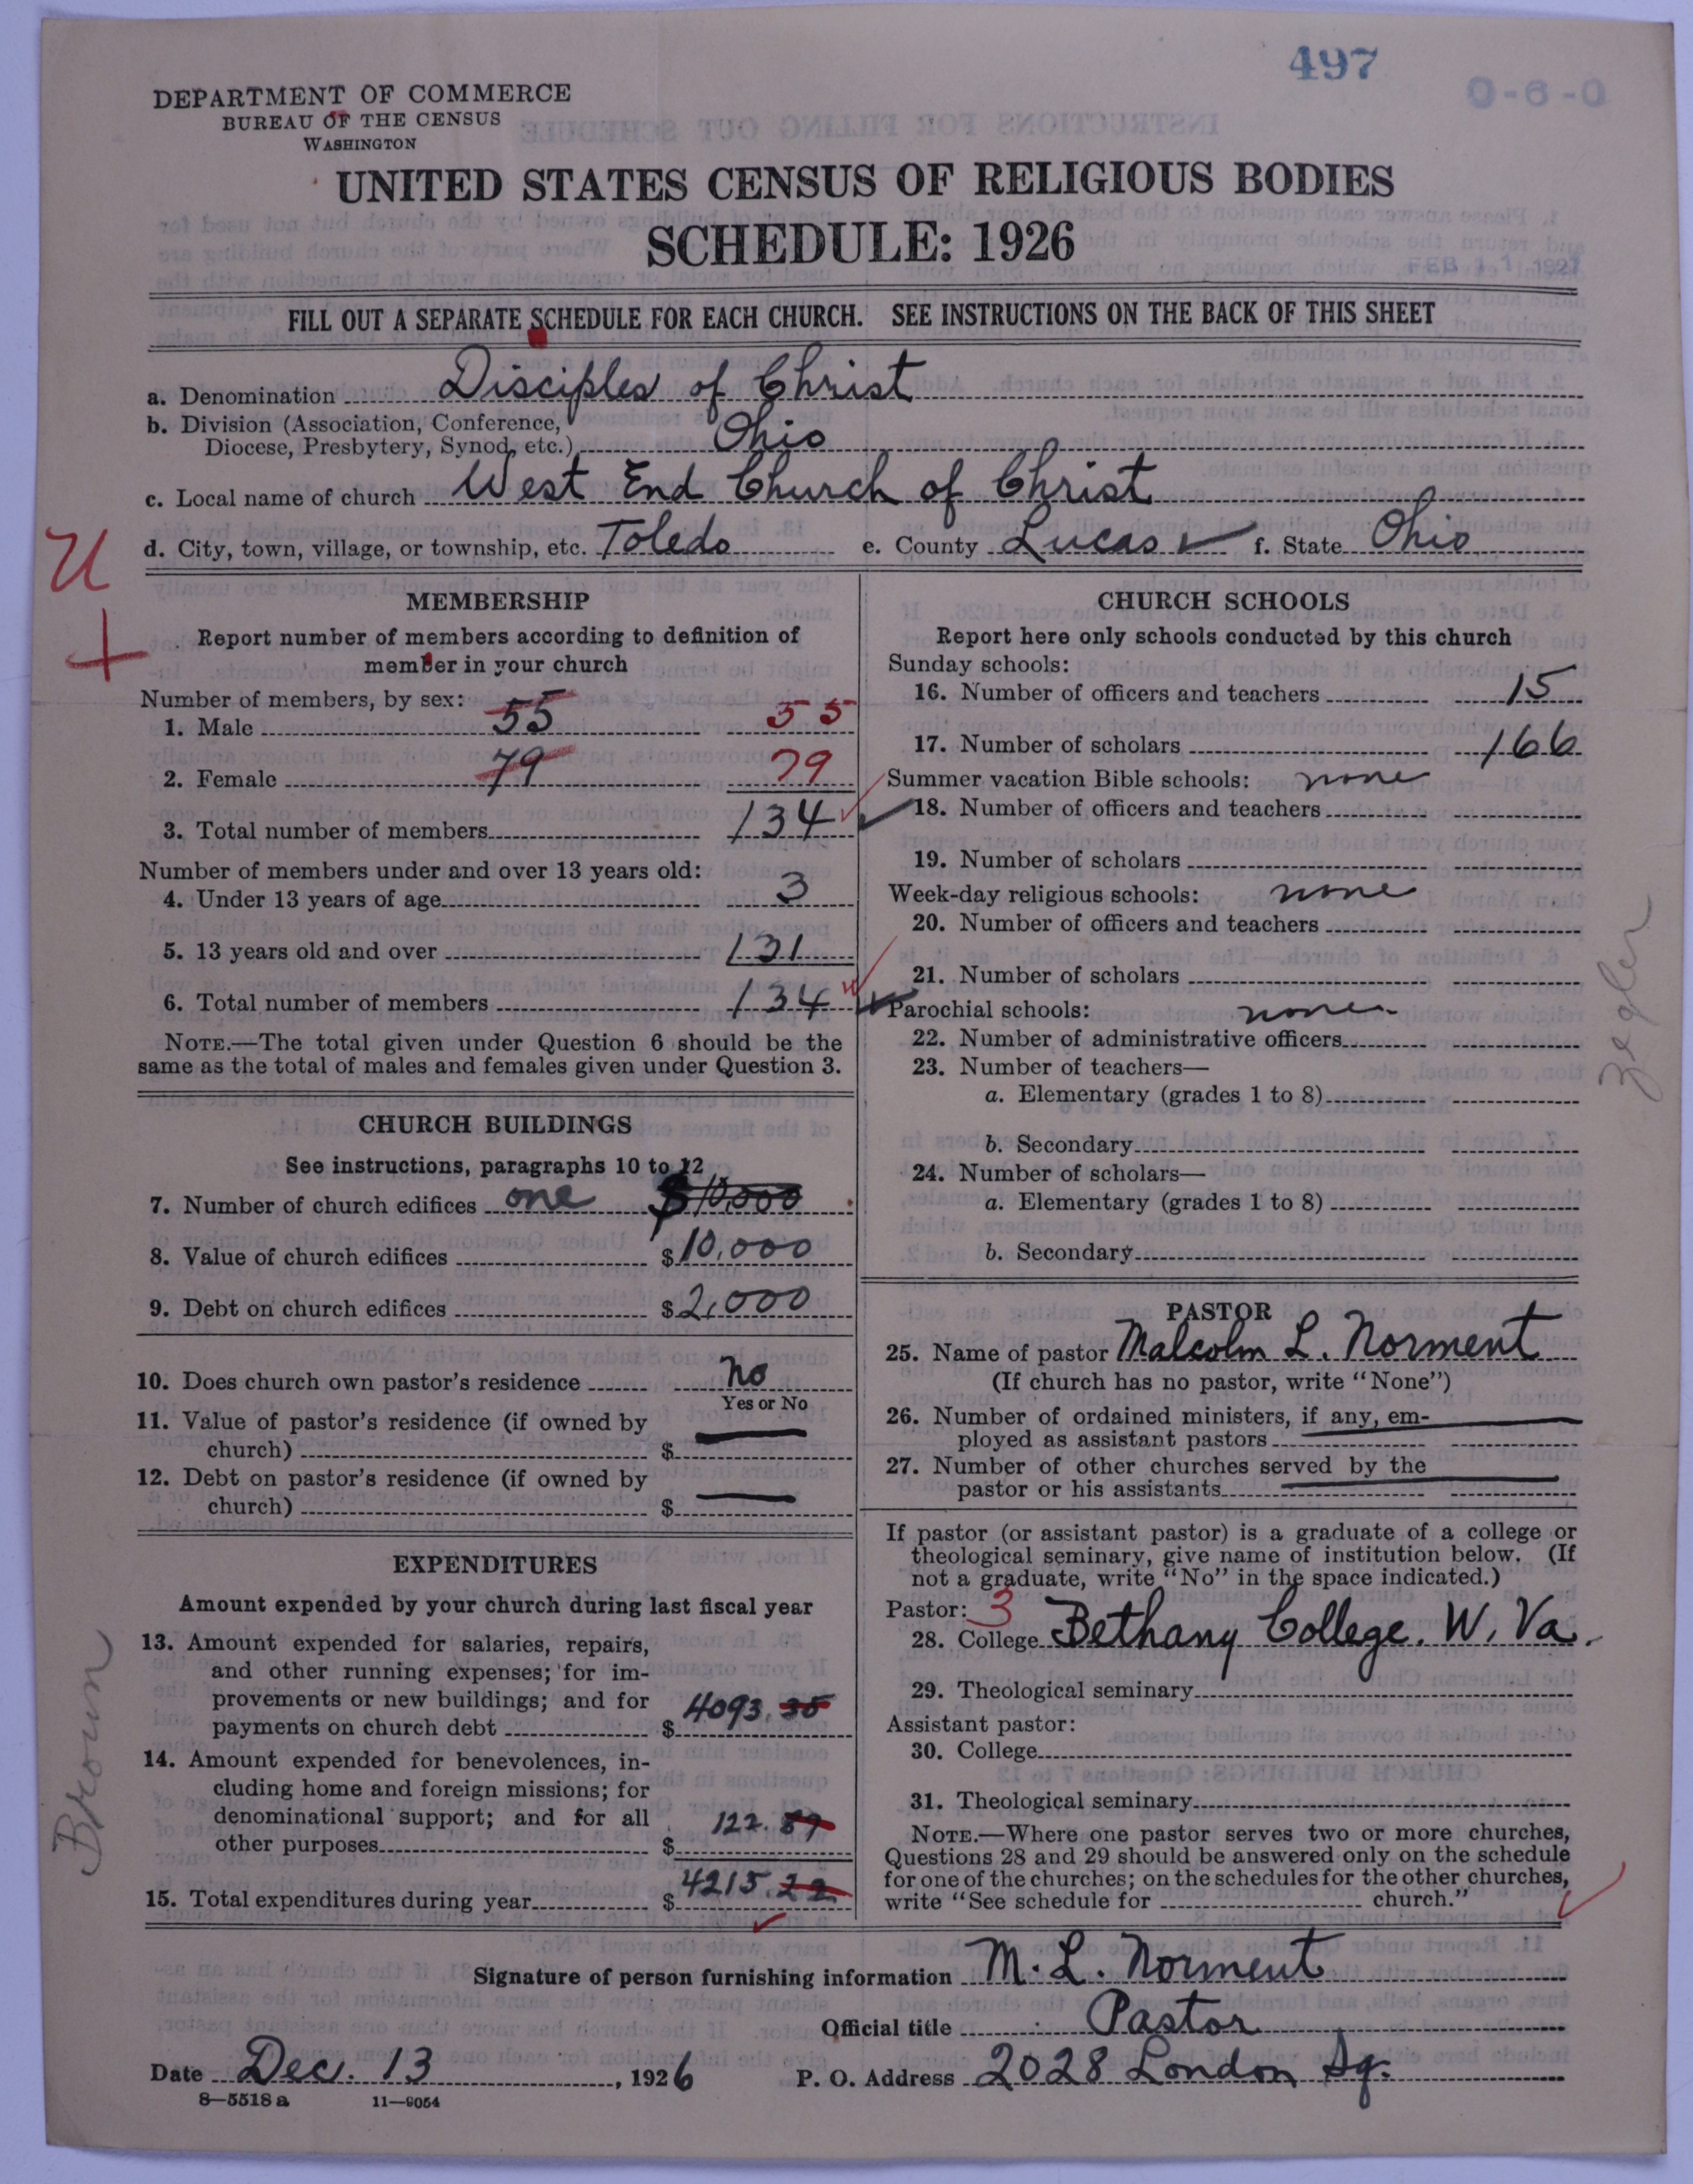 497
0-6-0
DEPARTMENT OF COMMERCE
BUREAU OF THE CENSUS
WASHINGTON
UNITED STATES CENSUS OF RELIGIOUS BODIES
SCHEDULE: 1926
FEB 11 1927
FILL OUT A SEPARATE SCHEDULE FOR EACH CHURCH. SEE INSTRUCTIONS ON THE BACK OF THIS SHEET
a. Denomination Disciples of Christ
b. Division (Association, Conference,
Diocese, Presbytery, Synod, etc.) Ohio
c. Local name of church West End Church of Christ
d. City, town, village, or township, etc. Toledo e. County Lucas ✓ f. State Ohio
U
+
MEMBERSHIP
Report number of members according to definition of
member in your church
Number of members, by sex:
1. Male 55 55
2. Female 79 79
3. Total number of members 134
Number of members under and over 13 years old:
4. Under 13 years of age 3
5. 13 years old and over 131
6. Total number of members 134
NOTE.—The total given under Question 6 should be the
same as the total of males and females given under Question 3.
CHURCH BUILDINGS
See instructions, paragraphs 10 to 12
7. Number of church edifices one $10,000
8. Value of church edifices $10,000
9. Debt on church edifices $2,000
10. Does church own pastor's residence No
Yes or No
11. Value of pastor's residence (if owned by
church) $ —
12. Debt on pastor's residence (if owned by
church) $ —
EXPENDITURES
Amount expended by your church during last fiscal year
13. Amount expended for salaries, repairs,
and other running expenses; for im-
provements or new buildings; and for
payments on church debt $ 4093.35
14. Amount expended for benevolences, in-
cluding home and foreign missions; for
denominational support; and for all
other purposes $ 122.87
15. Total expenditures during year $ 4215.22
Brown
CHURCH SCHOOLS
Report here only schools conducted by this church
Sunday schools:
16. Number of officers and teachers 15
17. Number of scholars 166
Summer vacation Bible schools: none
18. Number of officers and teachers
19. Number of scholars
Week-day religious schools: none
20. Number of officers and teachers
21. Number of scholars
Parochial schools: none
22. Number of administrative officers
23. Number of teachers—
a. Elementary (grades 1 to 8)
b. Secondary
24. Number of scholars—
a. Elementary (grades 1 to 8)
b. Secondary
PASTOR
25. Name of pastor Malcolm L. Norment
(If church has no pastor, write "None")
26. Number of ordained ministers, if any, em-
ployed as assistant pastors
27. Number of other churches served by the
pastor or his assistants
If pastor (or assistant pastor) is a graduate of a college or
theological seminary, give name of institution below. (If
not a graduate, write "No" in the space indicated.)
Pastor: 3
28. College Bethany College. W. Va.
29. Theological seminary
Assistant pastor:
30. College
31. Theological seminary
NOTE.—Where one pastor serves two or more churches,
Questions 28 and 29 should be answered only on the schedule
for one of the churches; on the schedules for the other churches,
write "See schedule for church."
Signature of person furnishing information M. L. Norment
Official title Pastor
Date Dec. 13, 1926 P. O. Address 2028 London Sq.
8—5518a 11—9054